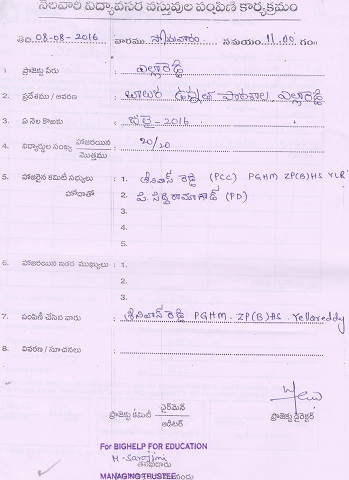 నెలవారీ విద్యావసర వస్తువుల పంపిణి కార్యక్రమం
తేది. 08-08-2016 వారము. సోమవారం సమయం. 11.00 గం॥
1. ప్రాజెక్టు పేరు : ఎల్లారెడ్డి
2. ప్రదేశము / ఆవరణ : బాలుర ఉన్నత పాఠశాల, ఎల్లారెడ్డి
3. ఏ నెల కొరకు : జులై - 2016
4. విద్యార్థుల సంఖ్య హాజరయిన / మొత్తము : 20/20
5. హాజరైన కమిటీ సభ్యులు : 1. శ్రీనివాస్ రెడ్డి (PCC) PGHM ZP(B)HS YLR
హోదాతో 2. పి. సిద్ధిరామాగౌడ్ (PD)
3.
4.
5.
6. హాజరయిన ఇతర ముఖ్యులు : 1.
2.
3.
7. పంపిణీ చేసిన వారు : శ్రీనివాస్ రెడ్డి PGHM. ZP(B)HS. Yellareddy
8. వివరణ / సూచనలు :
ప్రాజెక్టు కమిటీ చైర్‌మెన్ / ఆడిటర్ ప్రాజెక్టు డైరెక్టర్
For BIGHELP FOR EDUCATION
M. Sarojini
MANAGING TRUSTEE